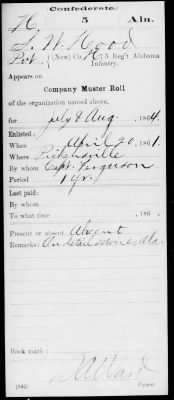 Confederate.
H 5 Ala.
S. W. Hood
Pvt. (New) Co. H, 5 Reg't Alabama
Infantry.
Appears on
Company Muster Roll
of the organization named above,
for July & Aug, 1864.
Enlisted:
When April 20, 1861
Where Pickensville
By whom Capt. Ferguson
Period 1 yr.
Last paid:
By whom
To what time , 186 .
Present or absent Absent
Remarks: On detail Ala.
Book mark:
(642) Copyist.